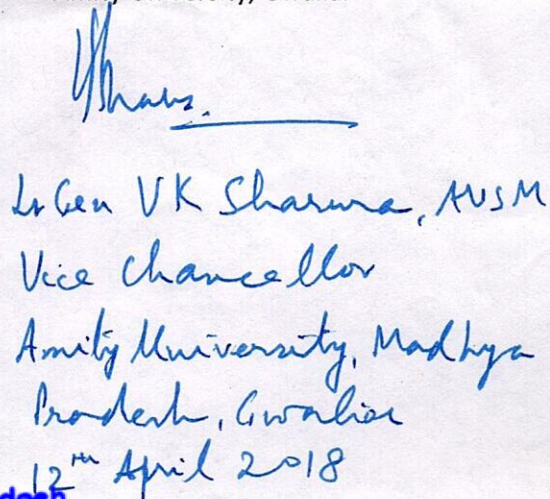 Lt Gen VK Sharma, AVSM
Vice Chancellor
Amity University, Madhya
Pradesh, Gwalior
12th April 2018